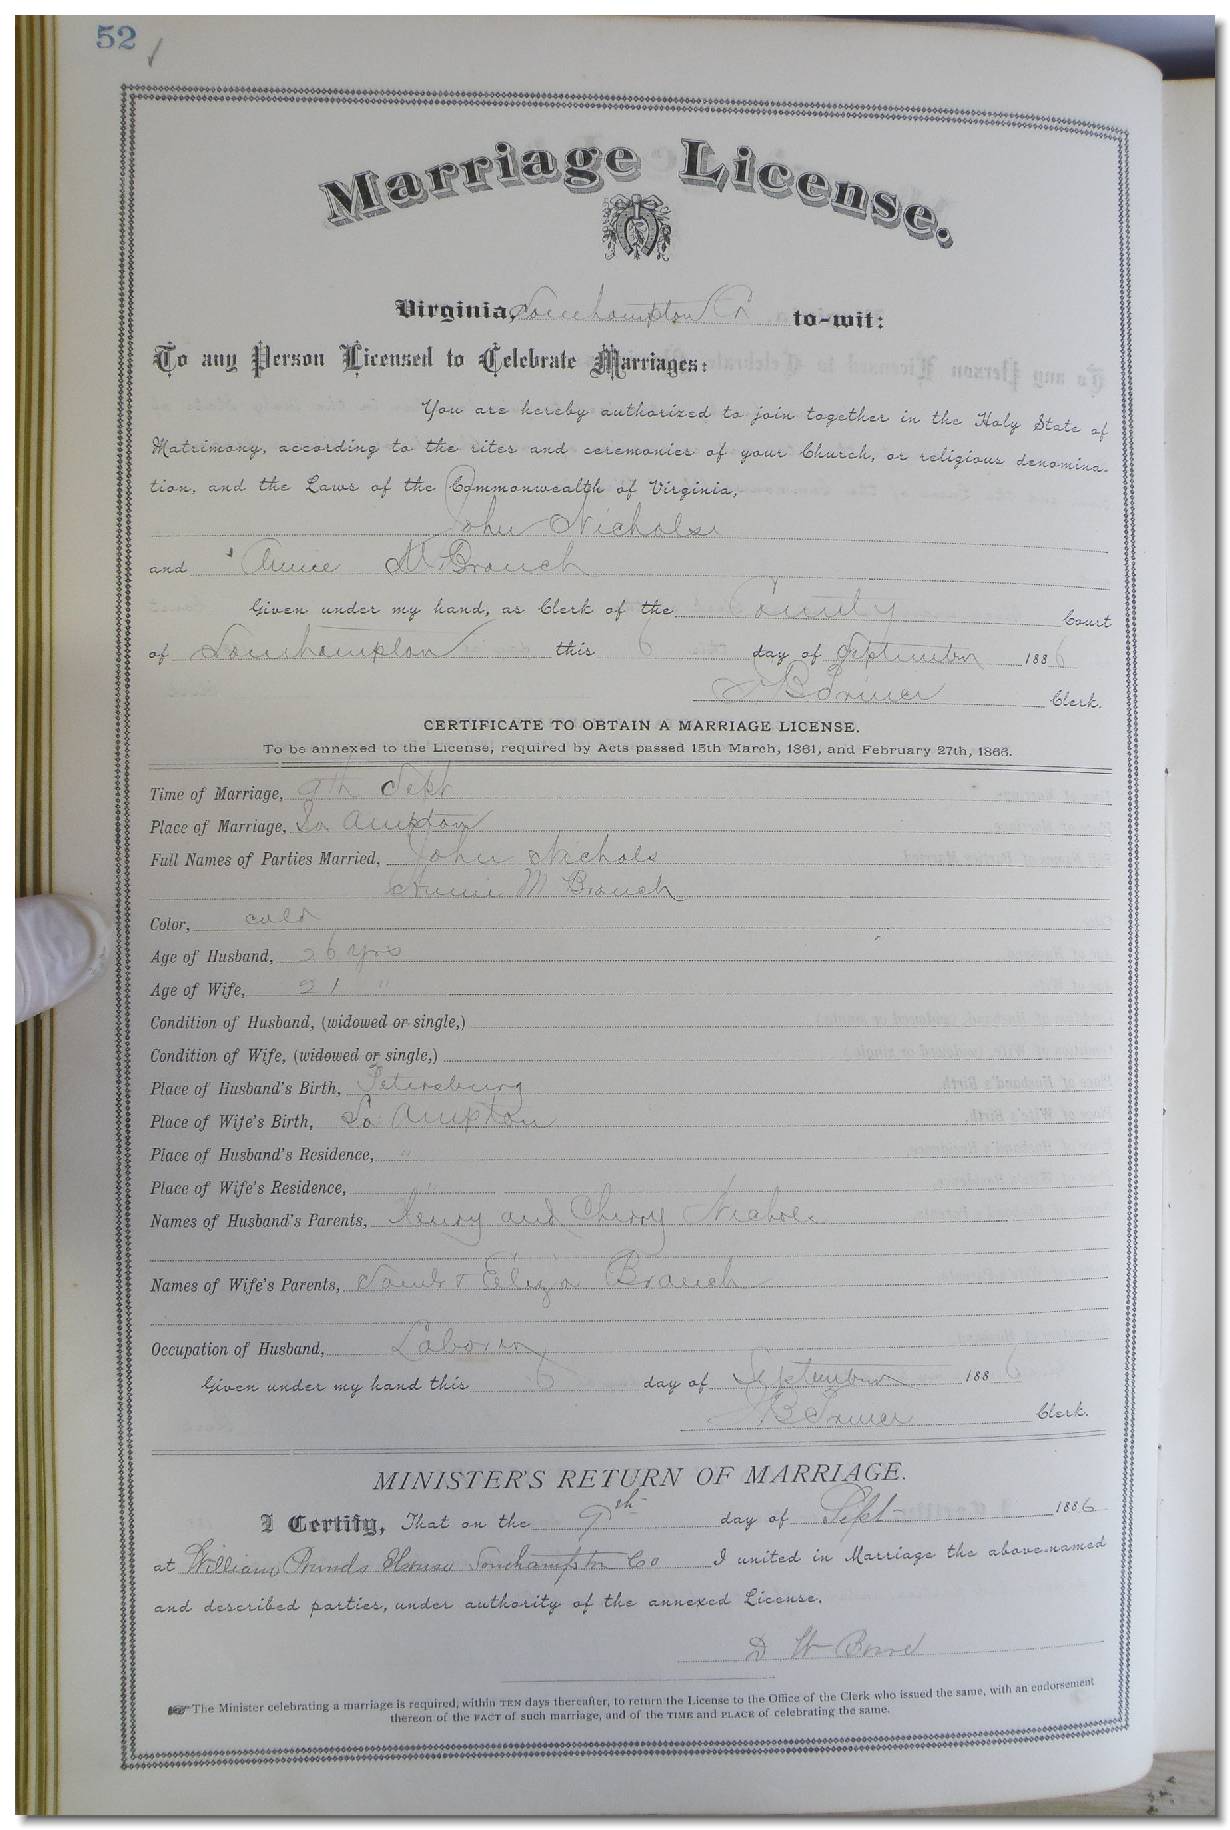 52
Marriage License.
Virginia, Southampton Co to-wit:
To any Person Licensed to Celebrate Marriages:
You are hereby authorized to join together in the Holy State of
Matrimony, according to the rites and ceremonies of your Church, or religious denomina-
tion, and the Laws of the Commonwealth of Virginia,
John Nichols
and Annie M Branch
Given under my hand, as Clerk of the County Court
of Southampton this 6 day of September 1886
Clerk.
CERTIFICATE TO OBTAIN A MARRIAGE LICENSE.
To be annexed to the License, required by Acts passed 15th March, 1861, and February 27th, 1866.
Time of Marriage, 9th Sept
Place of Marriage, So ampton
Full Names of Parties Married, John Nichols
Annie M Branch
Color, cold
Age of Husband, 26 yrs
Age of Wife, 21 "
Condition of Husband, (widowed or single,)
Condition of Wife, (widowed or single,)
Place of Husband's Birth, Petersburg
Place of Wife's Birth, So ampton
Place of Husband's Residence, "
Place of Wife's Residence,
Names of Husband's Parents, Henry and Cherry Nichols
Names of Wife's Parents, Saml & Eliza Branch
Occupation of Husband, Laborer
Given under my hand this 6 day of September 1886
Clerk.
MINISTER'S RETURN OF MARRIAGE.
I Certify, That on the 9th day of Sept 1886
at William House Southampton Co I united in Marriage the above-named
and described parties, under authority of the annexed License.
D W
The Minister celebrating a marriage is required, within TEN days thereafter, to return the License to the Office of the Clerk who issued the same, with an endorsement
thereon of the FACT of such marriage, and of the TIME and PLACE of celebrating the same.